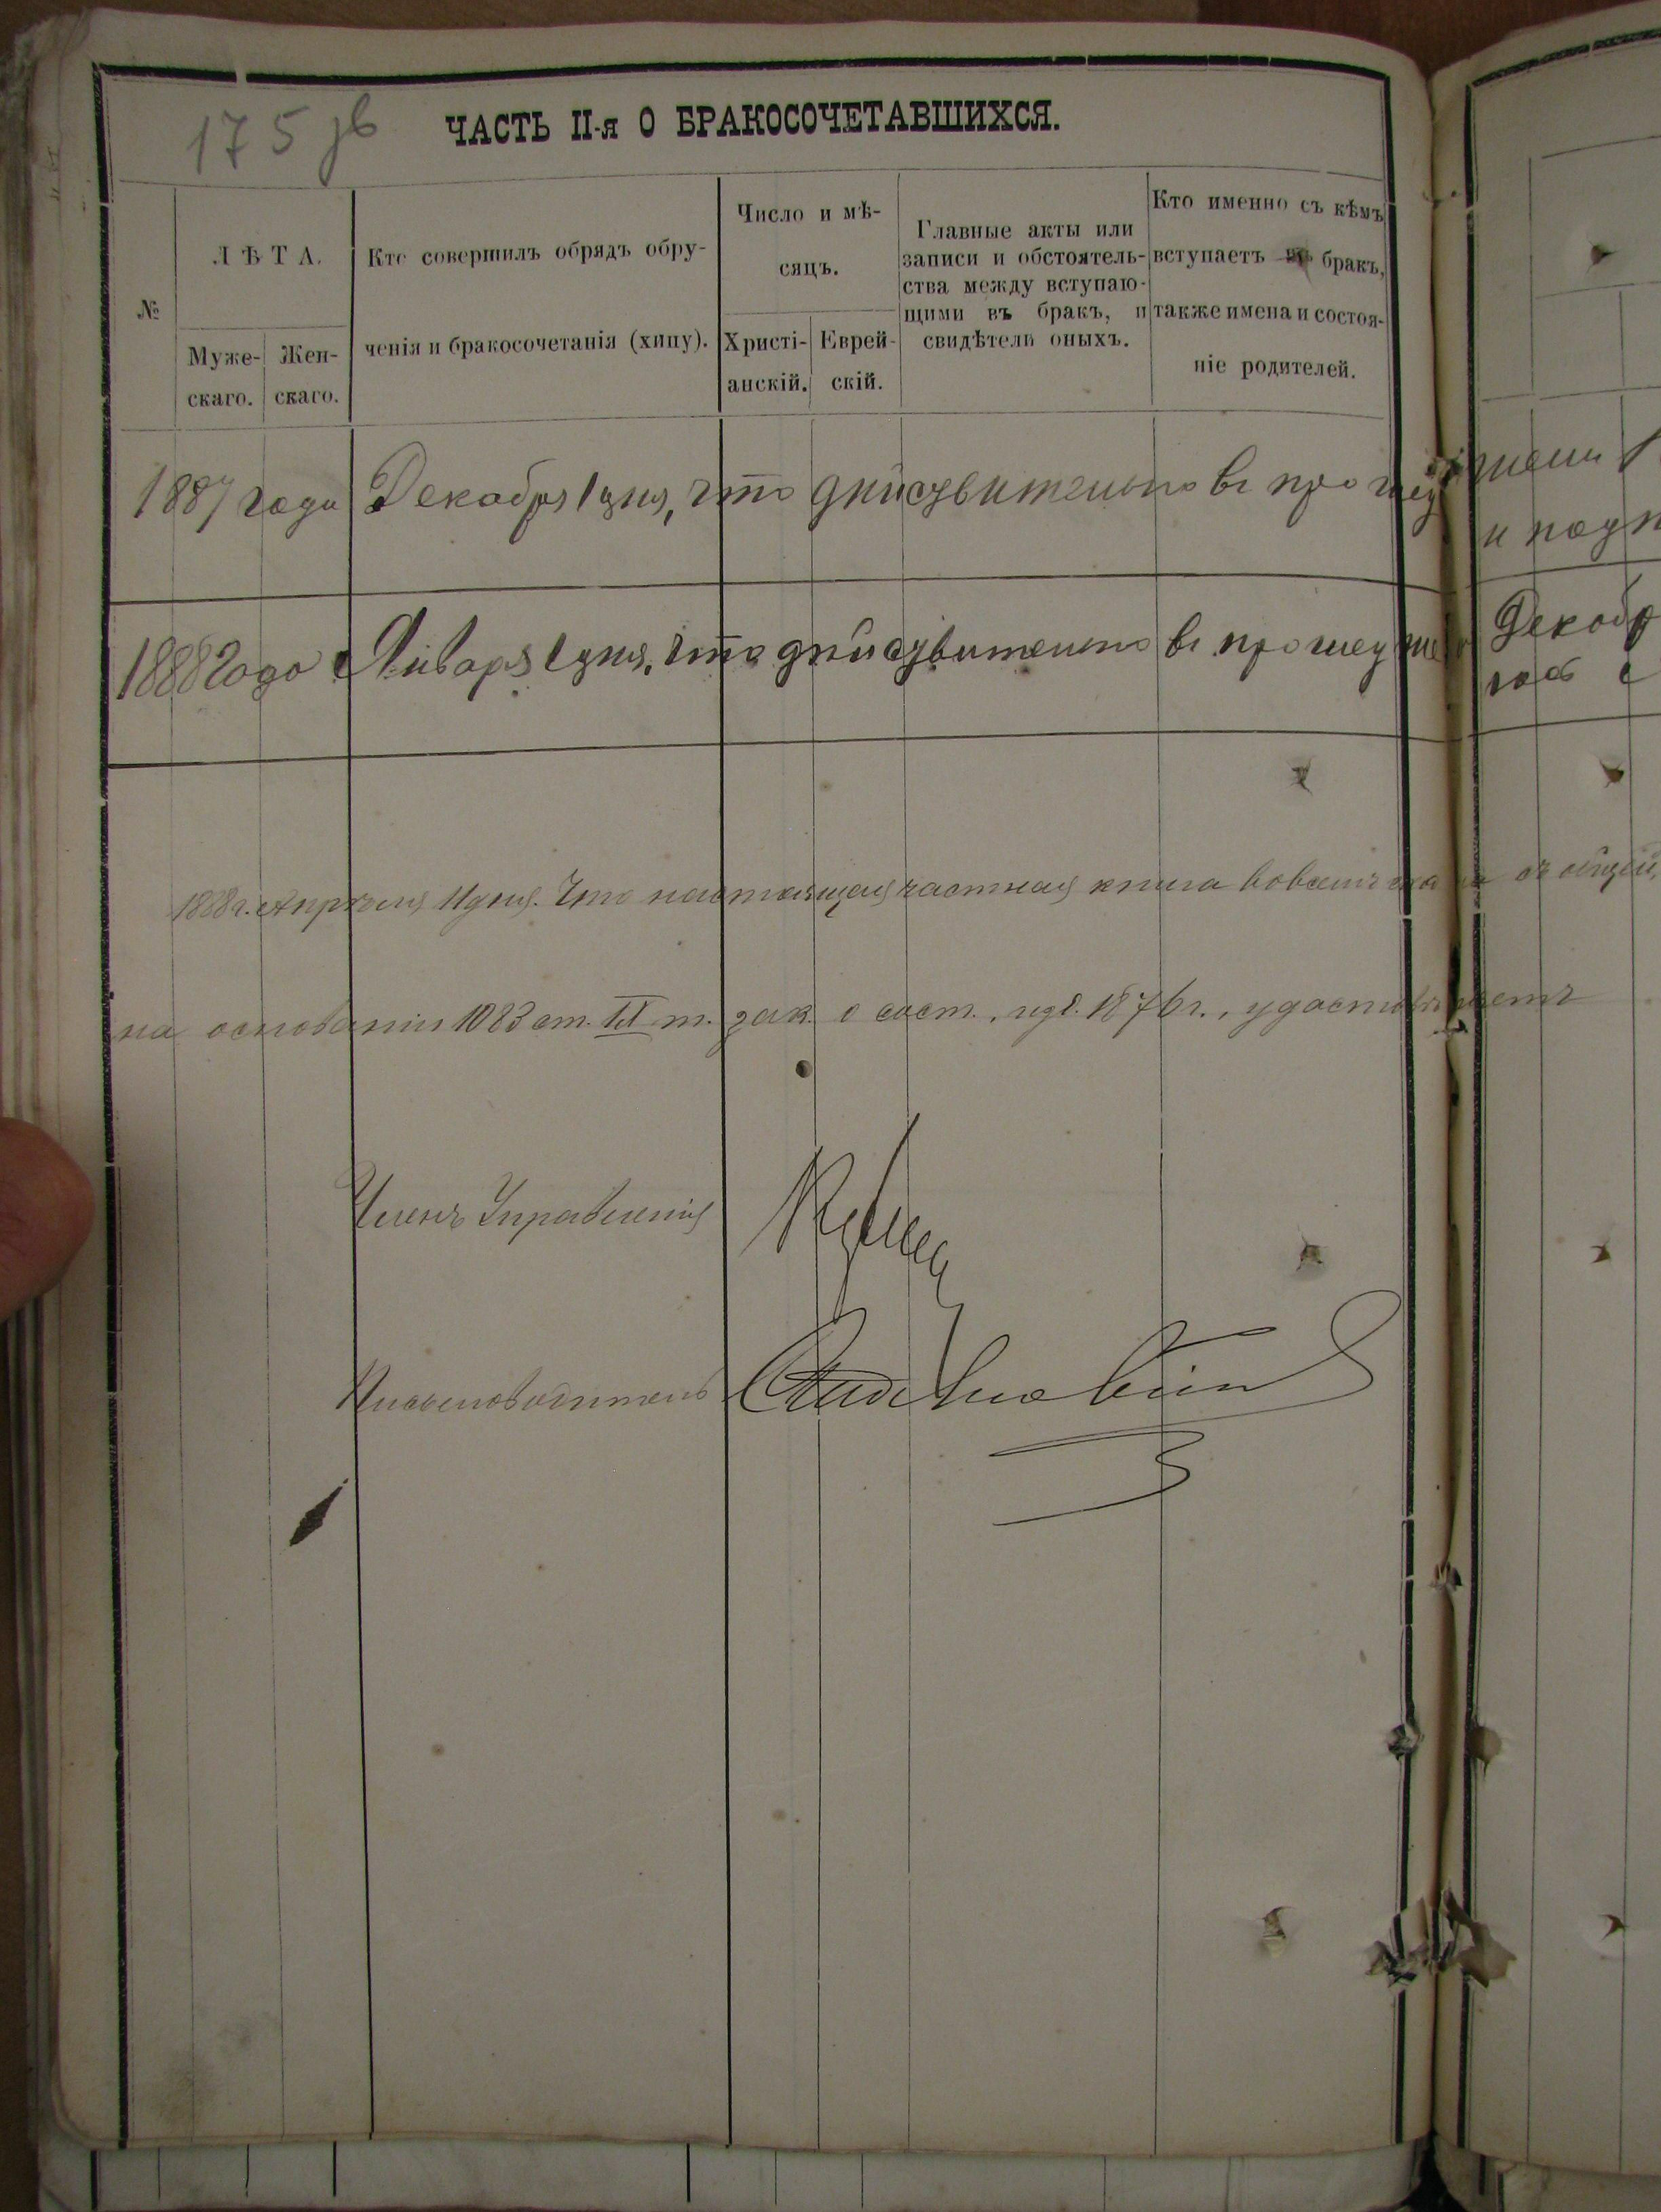 175 зв
ЧАСТЬ II-я О БРАКОСОЧЕТАВШИХСЯ.
№
ЛѢТА.
Муже-
скаго.
Жен-
скаго.
Кто совершилъ обрядъ обру-
ченія и бракосочетанія (хипу).
Число и мѣ-
сяцъ.
Христі-
анскій.
Еврей-
скій.
Главные акты или
записи и обстоятель-
ства между вступаю-
щими въ бракъ, и
свидѣтели оныхъ.
Кто именно съ кѣмъ
вступаетъ въ бракъ,
также имена и состоя-
ніе родителей.
1887 года Декабря 1 дня, что дѣйствительно въ прошед
1888 года Января 1 дня, что дѣйствительно въ прошедше
Декабр
1888 г. Апрѣля 11 дня. Что настоящая частная книга съ общей,
на основаніи 1083 ст. IX т. зак. о сост., изд. 1876 г., удостовѣряетъ
Членъ Управленія
Письмоводитель